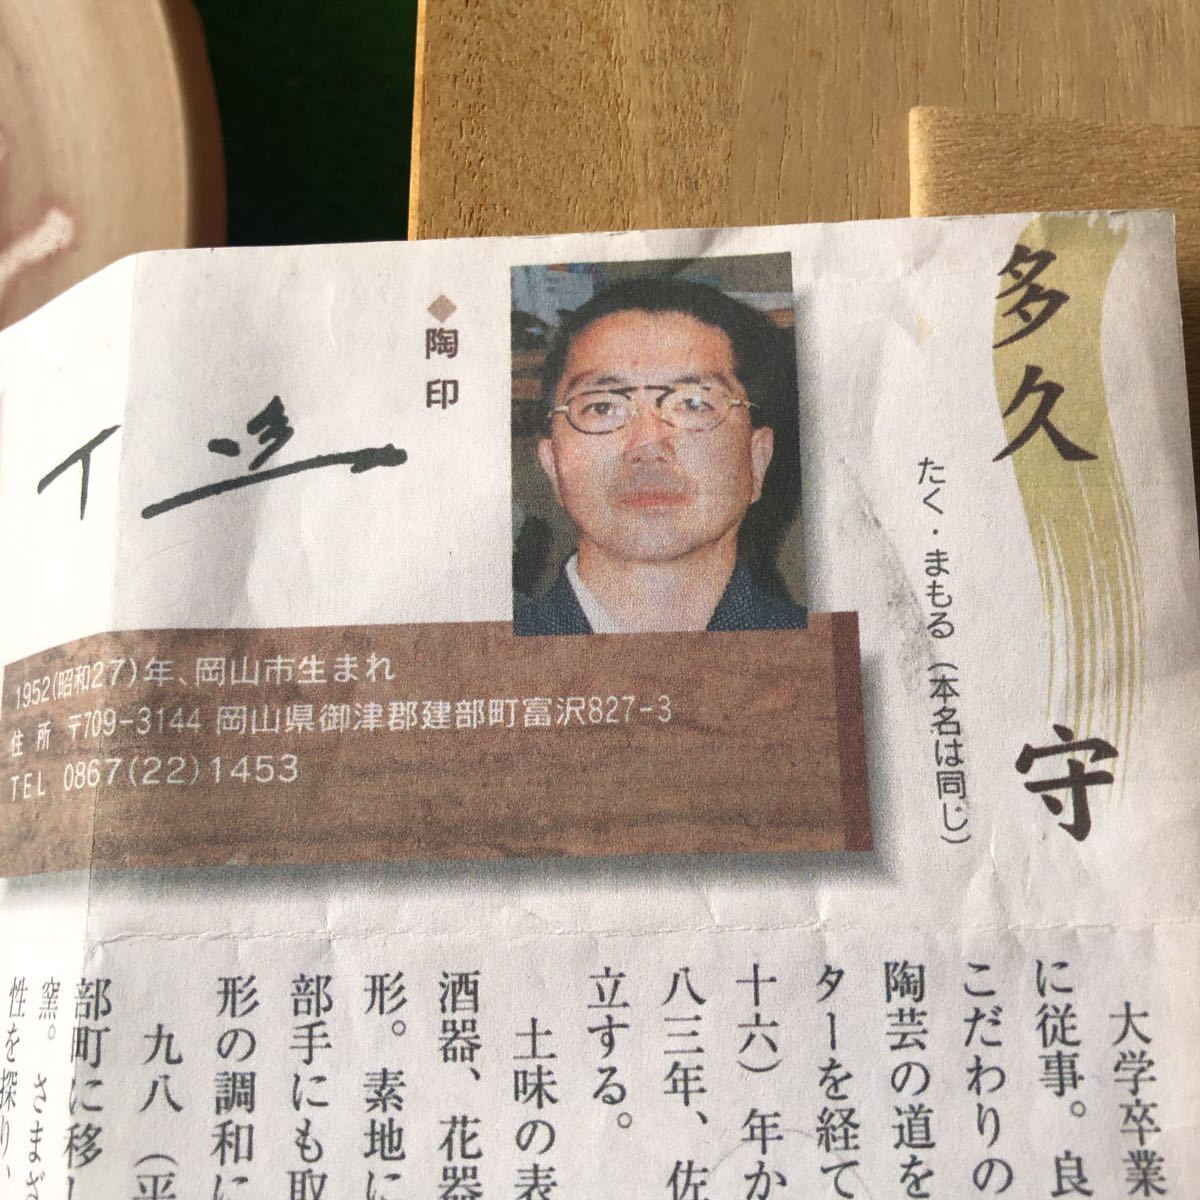 多久 守
たく・まもる（本名は同じ）
◆陶印
1952(昭和27)年、岡山市生まれ
住所 〒709-3144 岡山県御津郡建部町富沢827-3
TEL 0867(22)1453
大学卒業
に従事。良
こだわりの
陶芸の道を
ターを経て
十六）年か
八三年、佐
立する。
土味の表
酒器、花器
形。素地に
部手にも取
形の調和に
九八（平
部町に移し
窯。さまざ
性を探り、